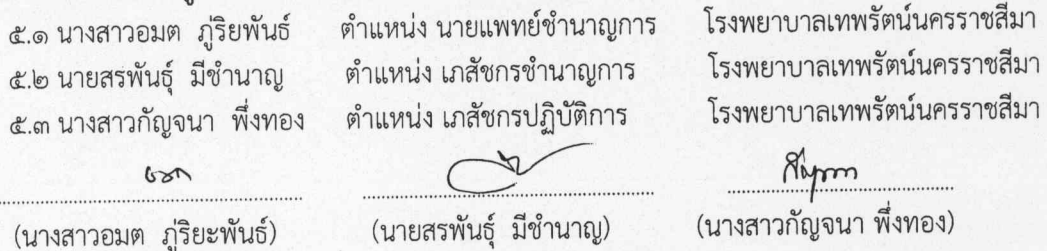 ๕.๑ นางสาวอมต ภู่ริยพันธ์ ตำแหน่ง นายแพทย์ชำนาญการ โรงพยาบาลเทพรัตน์นครราชสีมา
๕.๒ นายสรพันธุ์ มีชำนาญ ตำแหน่ง เภสัชกรชำนาญการ โรงพยาบาลเทพรัตน์นครราชสีมา
๕.๓ นางสาวกัญจนา พึ่งทอง ตำแหน่ง เภสัชกรปฏิบัติการ โรงพยาบาลเทพรัตน์นครราชสีมา
(นางสาวอมต ภู่ริยะพันธ์) (นายสรพันธุ์ มีชำนาญ) (นางสาวกัญจนา พึ่งทอง)